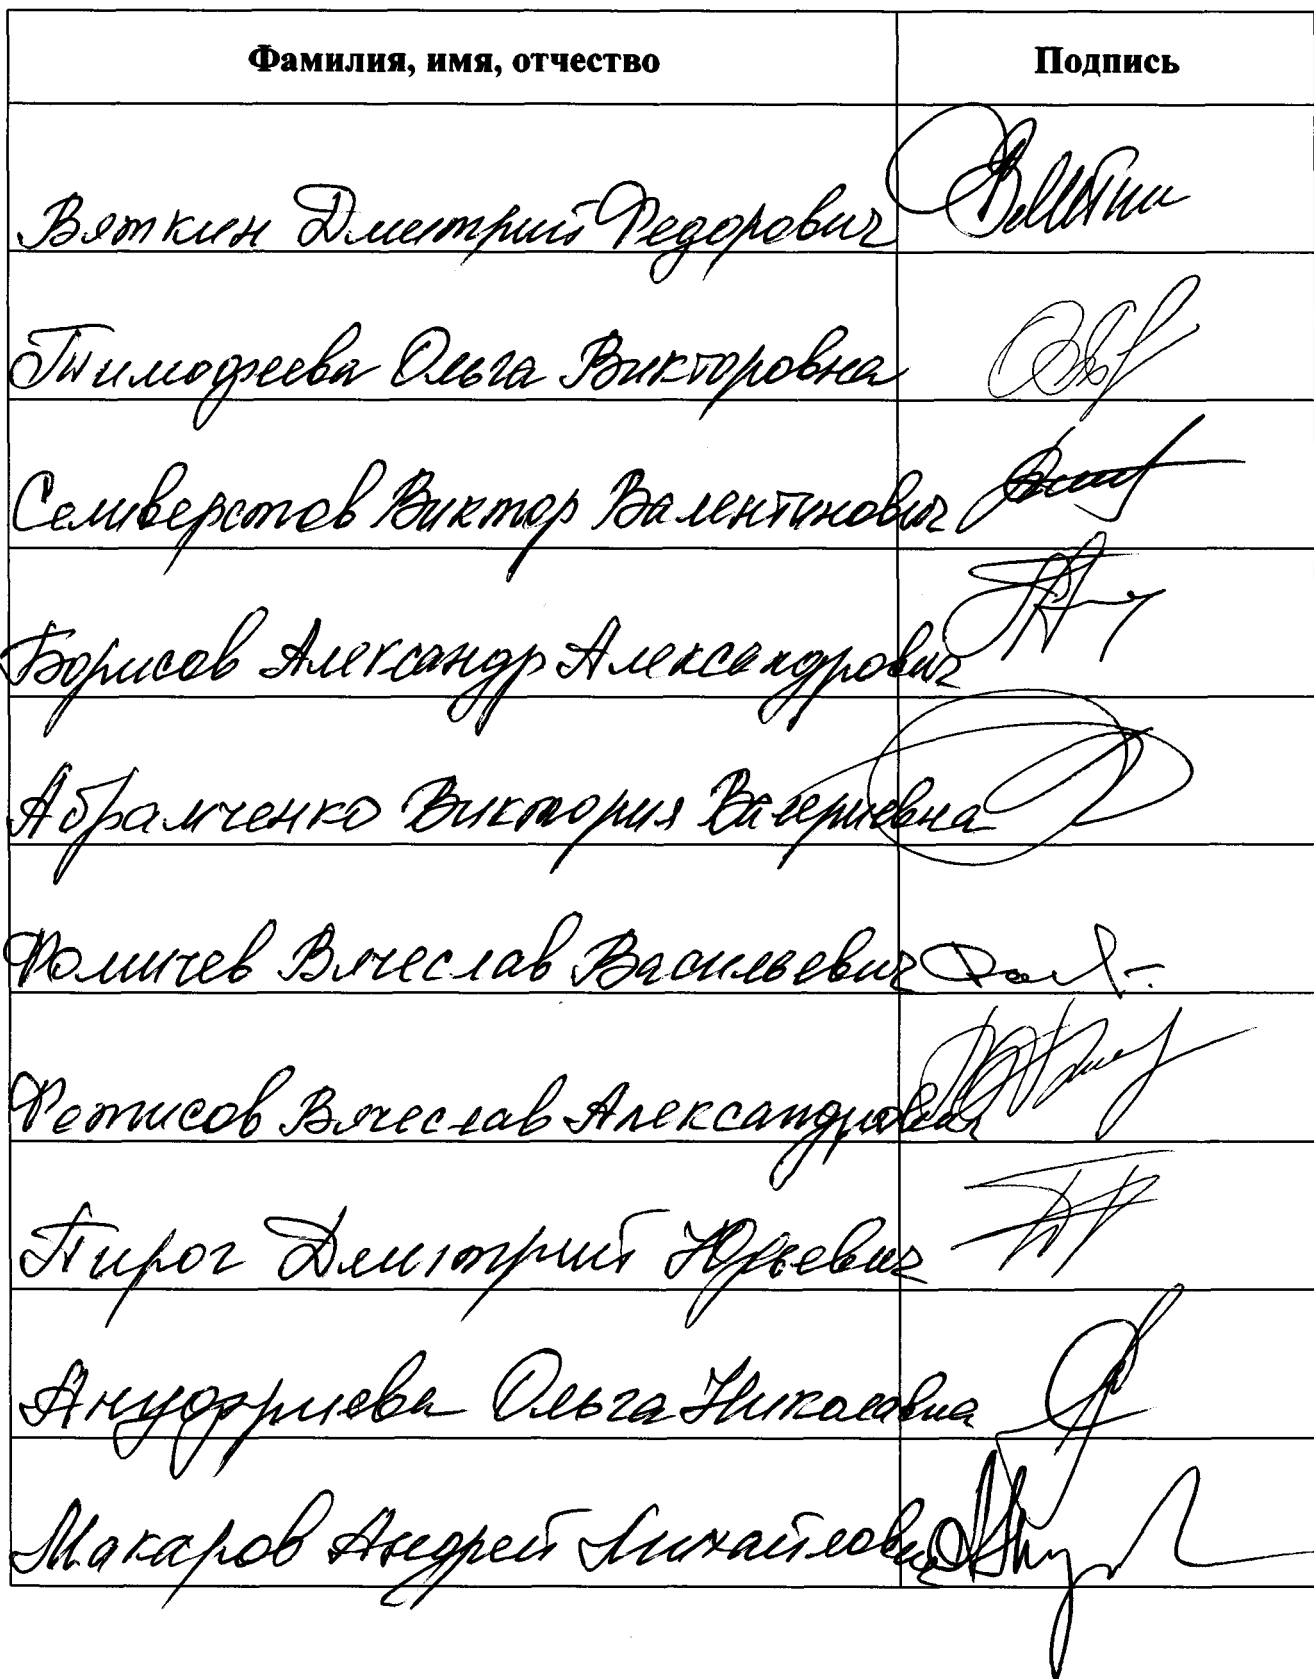 Фамилия, имя, отчество Подпись
Вяткин Дмитрий Федорович
Тимофеева Ольга Викторовна
Селиверстов Виктор Валентинович
Борисов Александр Александрович
Абрамченко Виктория Валериевна
Фомичев Вячеслав Васильевич
Фетисов Вячеслав Александрович
Пирог Дмитрий Юрьевич
Ануфриева Ольга Николавна
Макаров Андрей Михайлович